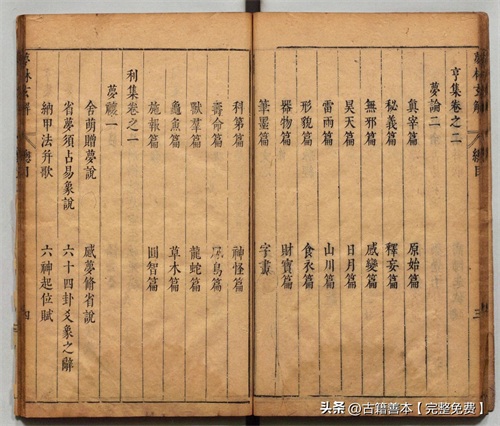 夢林玄解 總目 三
亨集卷之二
夢論二
眞宰篇 原始篇
秘義篇 釋妄篇
無邪篇 感變篇
昊天篇 日月篇
雷雨篇 山川篇
形貌篇 食衣篇
器物篇 財寶篇
筆墨篇 字畫
利第篇 神怪篇
壽命篇 鳥篇
獸羣篇 龍蛇篇
龜魚篇 草木篇
施報篇 圓智篇
利集卷之一
夢禳一
舍萌贈夢說 感夢脩省說
省夢須占易象說 六十四卦爻象之辭
納甲法并歌 六神起位賦
夢林玄解 總目 四
头条 @古籍善本【完整免费】